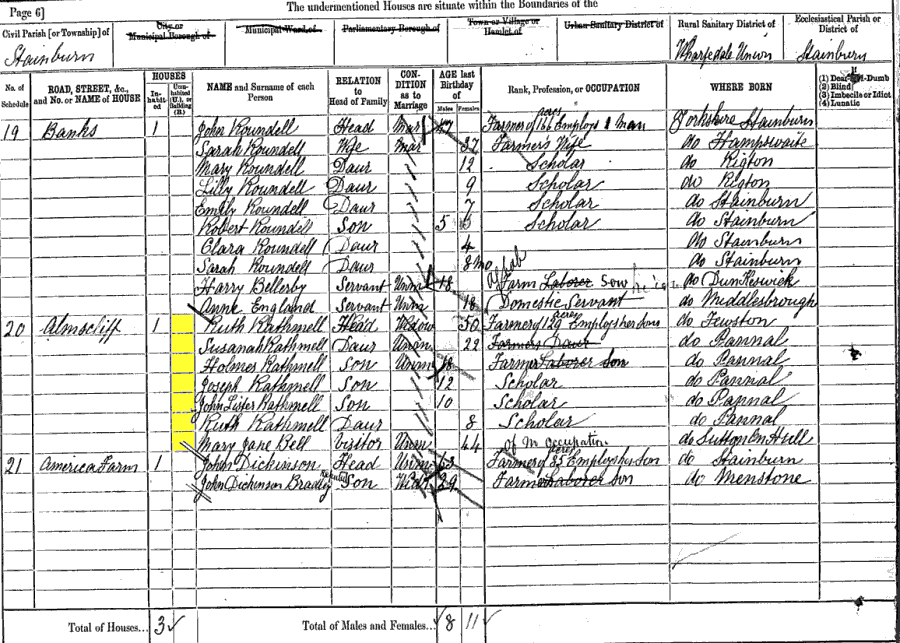 The undermentioned Houses are situate within the Boundaries of the
Page 6]
Civil Parish [or Township] of
Stainburn
City or Municipal Borough of
Municipal Ward of
Parliamentary Borough of
Town or Village or Hamlet of
Urban Sanitary District of
Rural Sanitary District of
Wharfedale Union
Ecclesiastical Parish or District of
Stainburn
No. of Schedule
ROAD, STREET, &c., and No. or NAME of HOUSE
HOUSES
In-habited
Un-inhabited (U.), or Building (B.)
NAME and Surname of each Person
RELATION to Head of Family
CON-DITION as to Marriage
AGE last Birthday of
Males
Females
Rank, Profession, or OCCUPATION
WHERE BORN
(1) Deaf-and-Dumb
(2) Blind
(3) Imbecile or Idiot
(4) Lunatic
19 Banks 1 John Roundell Head Mar 47 Farmer of 166 acres Employs 1 Man Yorkshire Stainburn
Sarah Roundell Wife Mar 37 Farmer's Wife do Hampswaite
Mary Roundell Daur 12 Scholar do Rigton
Lilly Roundell Daur 9 Scholar do Rigton
Emily Roundell Daur 7 Scholar do Stainburn
Robert Roundell Son 5 Scholar do Stainburn
Clara Roundell Daur 4 do Stainburn
Sarah Roundell Daur 8 mo do Stainburn
Harry Bellerby Servant Unm 18 Farm Laborer do Dunkeswick
Annie England Servant Unm 18 Domestic Servant do Middlesbrough
20 Almscliff 1 Ruth Rathmell Head Widow 50 Farmer of 129 acres Employs her sons do Fewston
Susanah Rathmell Daur Unm 22 Farmers Daur do Pannal
Holmes Rathmell Son Unm 18 Farmer Laborer son do Pannal
Joseph Rathmell Son 12 Scholar do Pannal
John Lister Rathmell Son 10 Scholar do Pannal
Ruth Rathmell Daur 8 Scholar do Pannal
Mary Jane Bell Visitor Unm 44 of no Occupation do Sutton On Hull
21 America Farm 1 John Dickinson Head Unm 63 Farmer of 35 acres Employs his Son do Stainburn
John Dickinson Bradley Son 29 Farmer Laborer son do Menstone
Total of Houses... 3
Total of Males and Females... 8 11